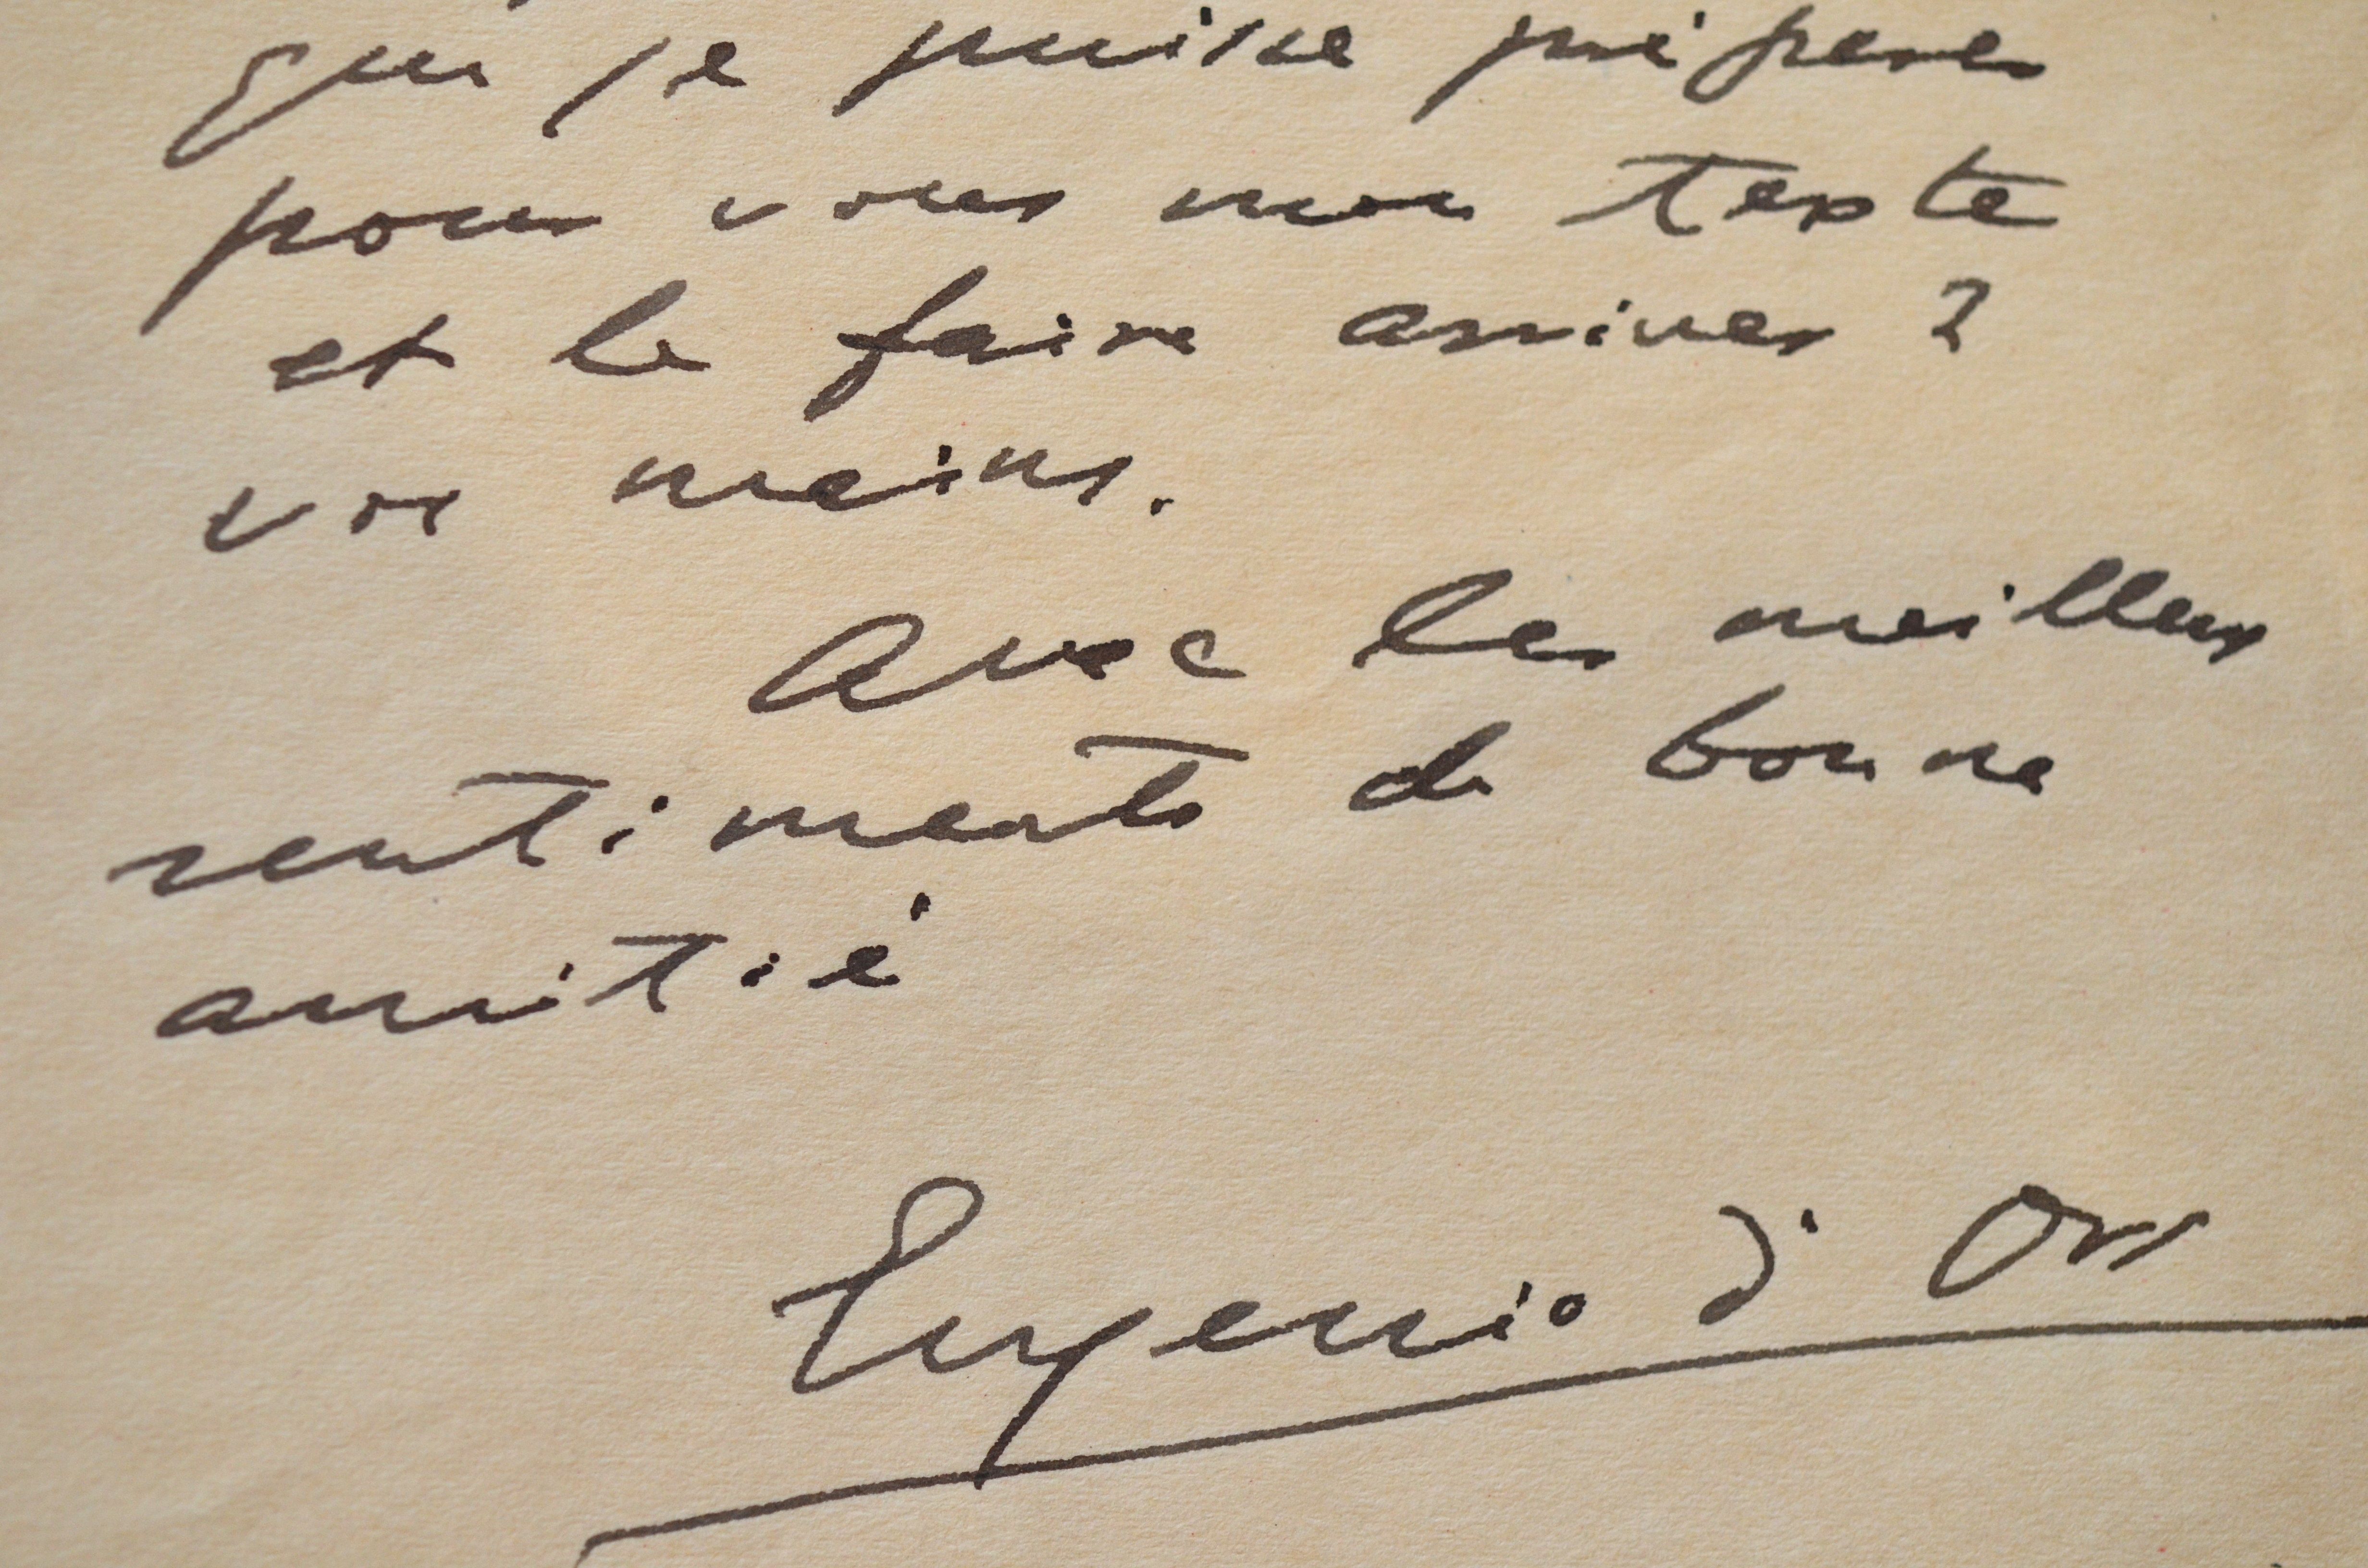 que je puisse préparer
pour vous mon texte
et le faire arriver ?
vos mains.
Avec les meilleurs
sentiments de bonne
amitié
Eugenio d'Ors